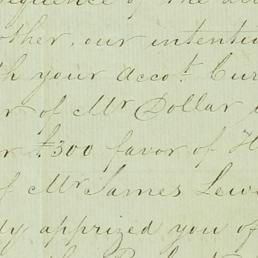 sequence of the
other, our intenti
th your Acco.t Cur
r of Mr Dollar
r $300 favor of H
f Mr James Lewi
dy apprized you of